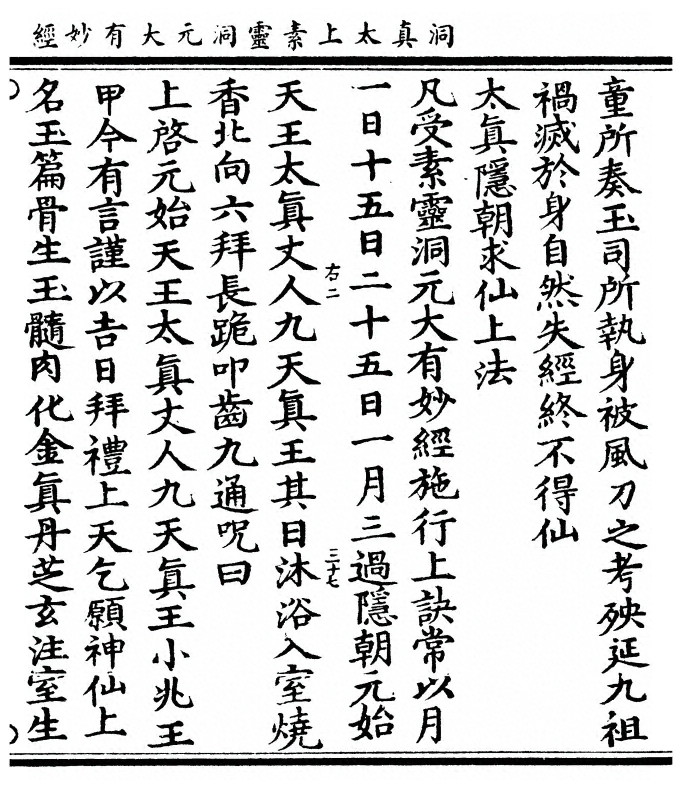 洞真太上素靈洞元大有妙經
童所奏玉司所執身被風刀之考殃延九祖
禍滅於身自然失經終不得仙
太真隱朝求仙上法
凡受素靈洞元大有妙經施行上訣常以月
一日十五日二十五日一月三過隱朝元始
右二
三十七
天王太眞丈人九天眞王其日沐浴入室燒
香北向六拜長跪叩齒九通呪曰
上啓元始天王太眞丈人九天眞王小兆王
甲今有言謹以吉日拜禮上天乞願神仙上
名玉篇骨生玉髓肉化金眞丹芝玄注室生